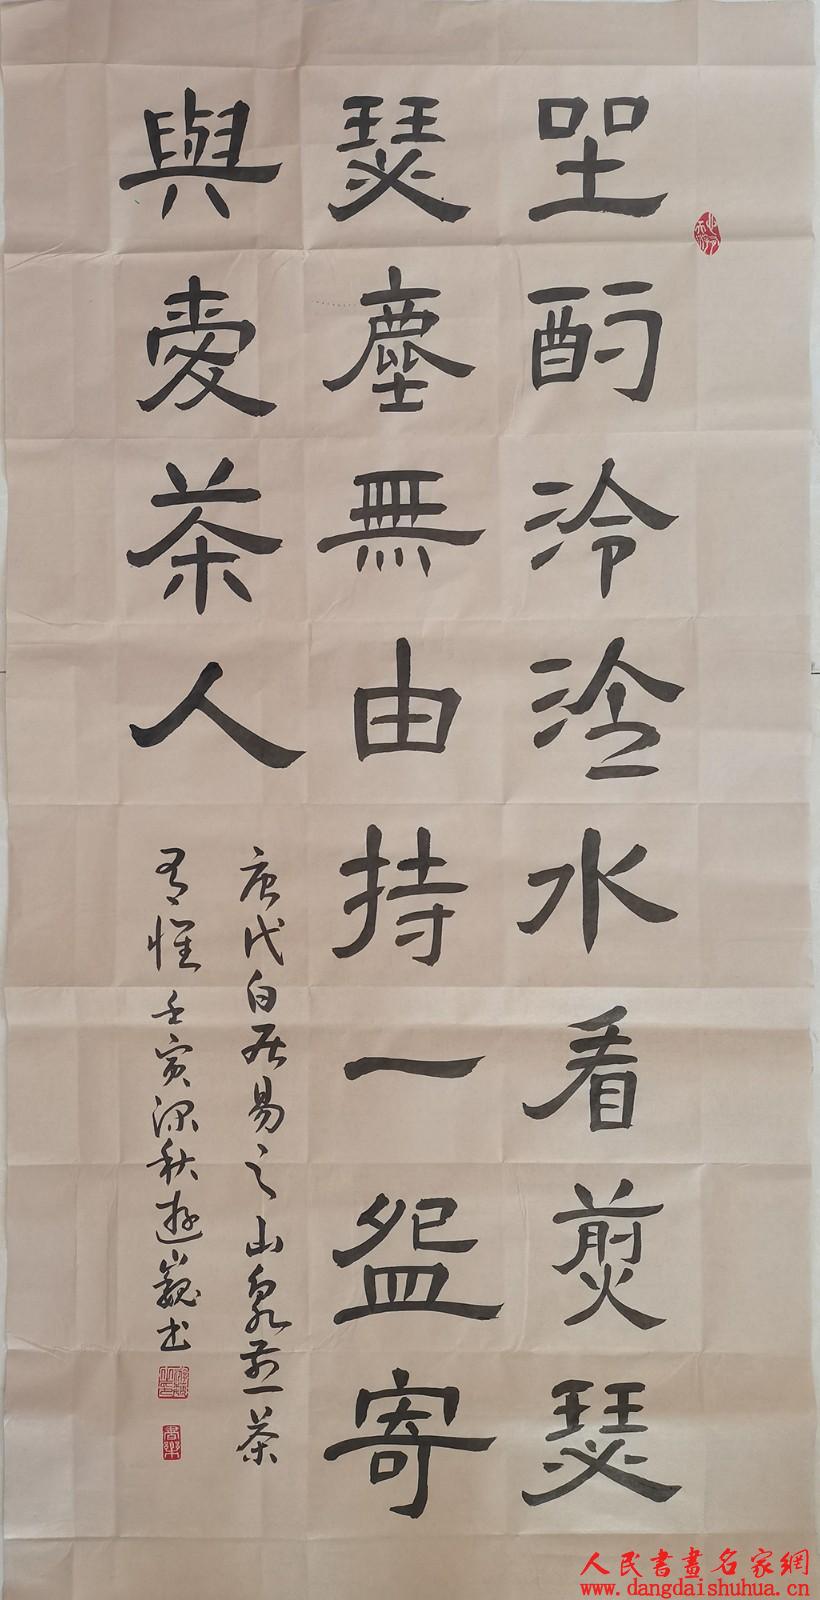 坐酌泠泠水看煎瑟
瑟塵無由持一盌寄
與愛茶人
唐代白居易之山泉煎茶
有懷壬寅深秋遊巍书
人民書畫名家網
www.dangdaishuhua.cn